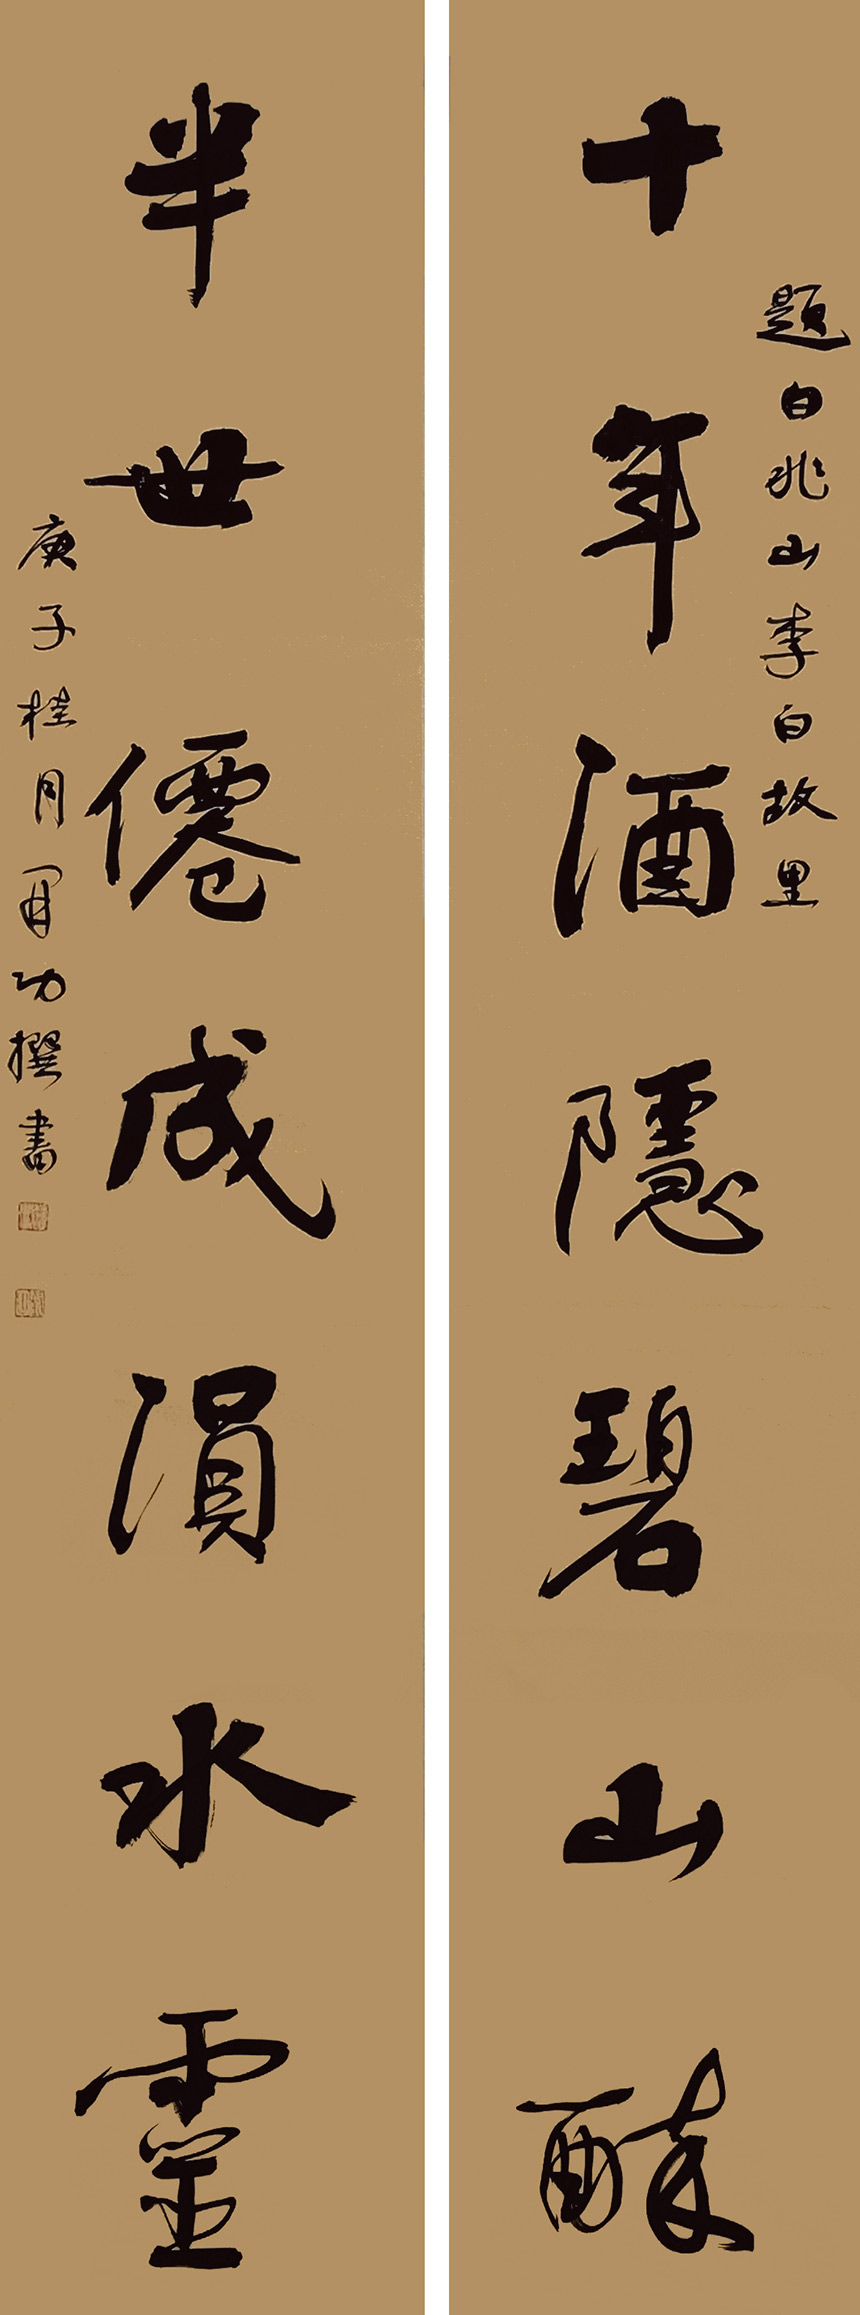 題白兆山李白故里
十年酒隱碧山醉
半世僊成溳水靈
庚子桂月军功撰書